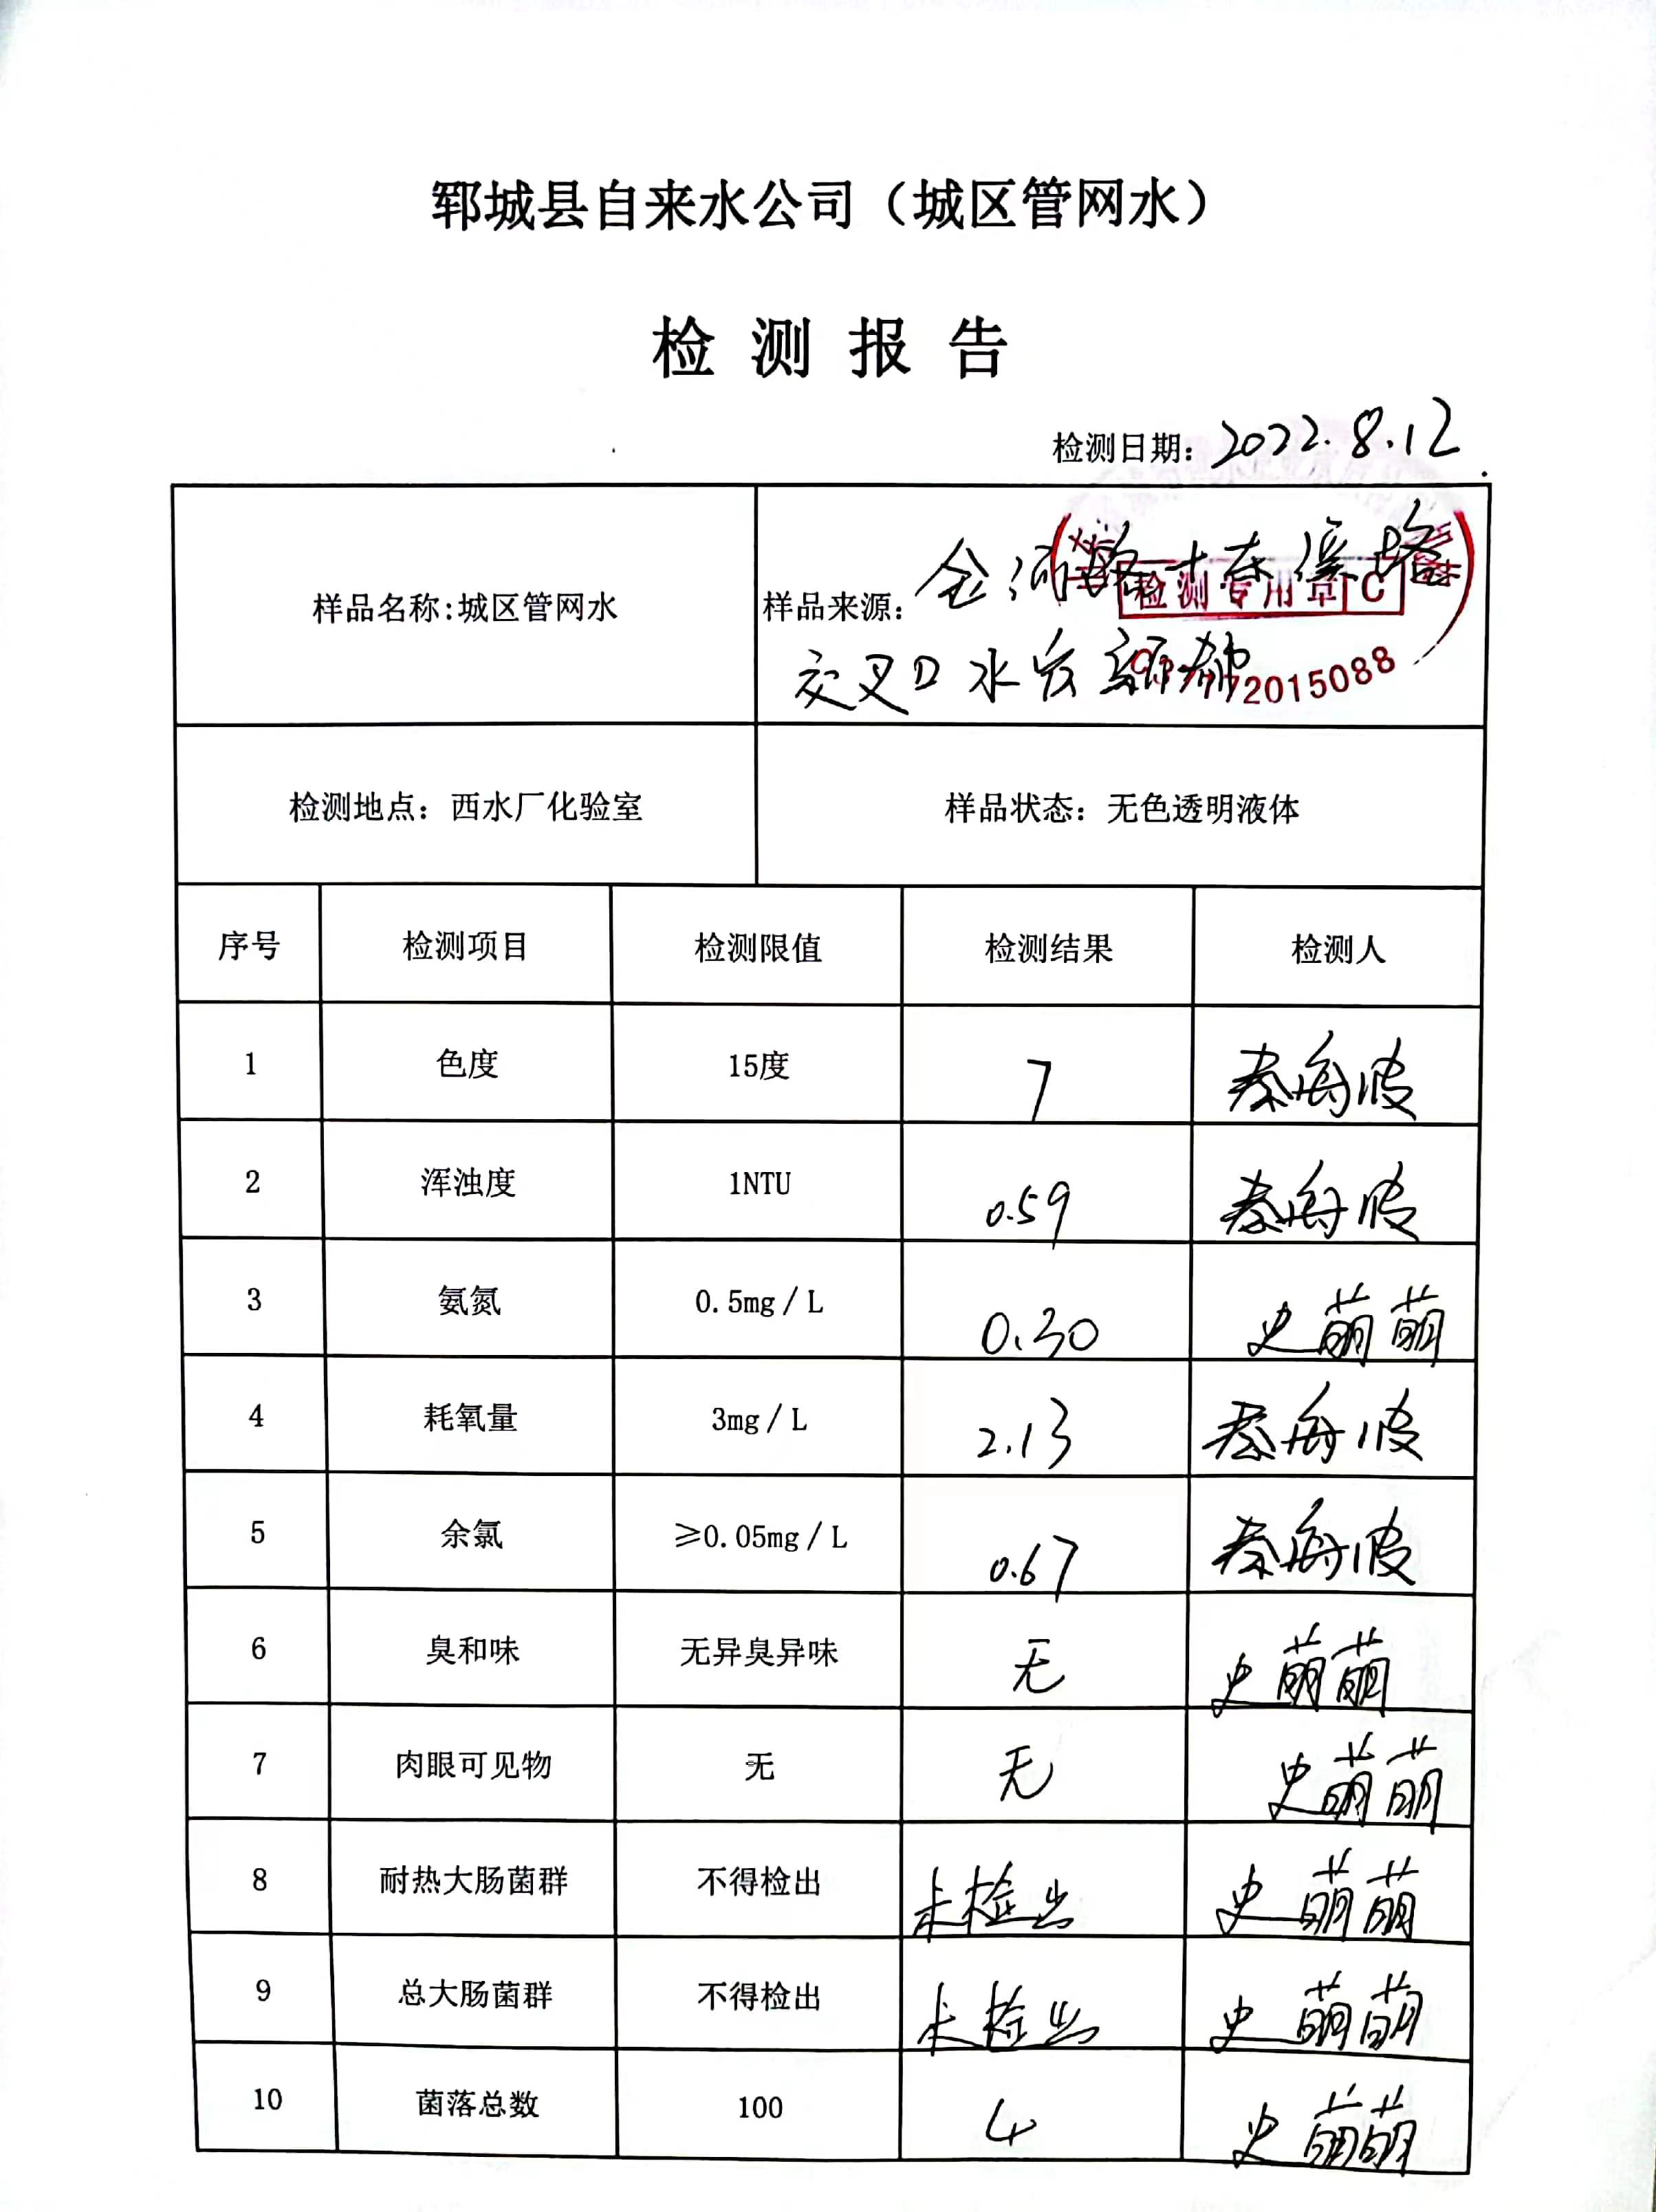 郓城县自来水公司（城区管网水）
检测报告
检测日期：2022.8.12
样品名称:城区管网水
样品来源：金河路 路
交叉口水发
检测专用章 C
2015088
检测地点：西水厂化验室 样品状态：无色透明液体
序号 检测项目 检测限值 检测结果 检测人
1 色度 15度 7 秦海波
2 浑浊度 1NTU 0.59 秦海波
3 氨氮 0.5mg/L 0.30 史萌萌
4 耗氧量 3mg/L 2.13 秦海波
5 余氯 ≥0.05mg/L 0.67 秦海波
6 臭和味 无异臭异味 无 史萌萌
7 肉眼可见物 无 无 史萌萌
8 耐热大肠菌群 不得检出 未检出 史萌萌
9 总大肠菌群 不得检出 未检出 史萌萌
10 菌落总数 100 4 史萌萌